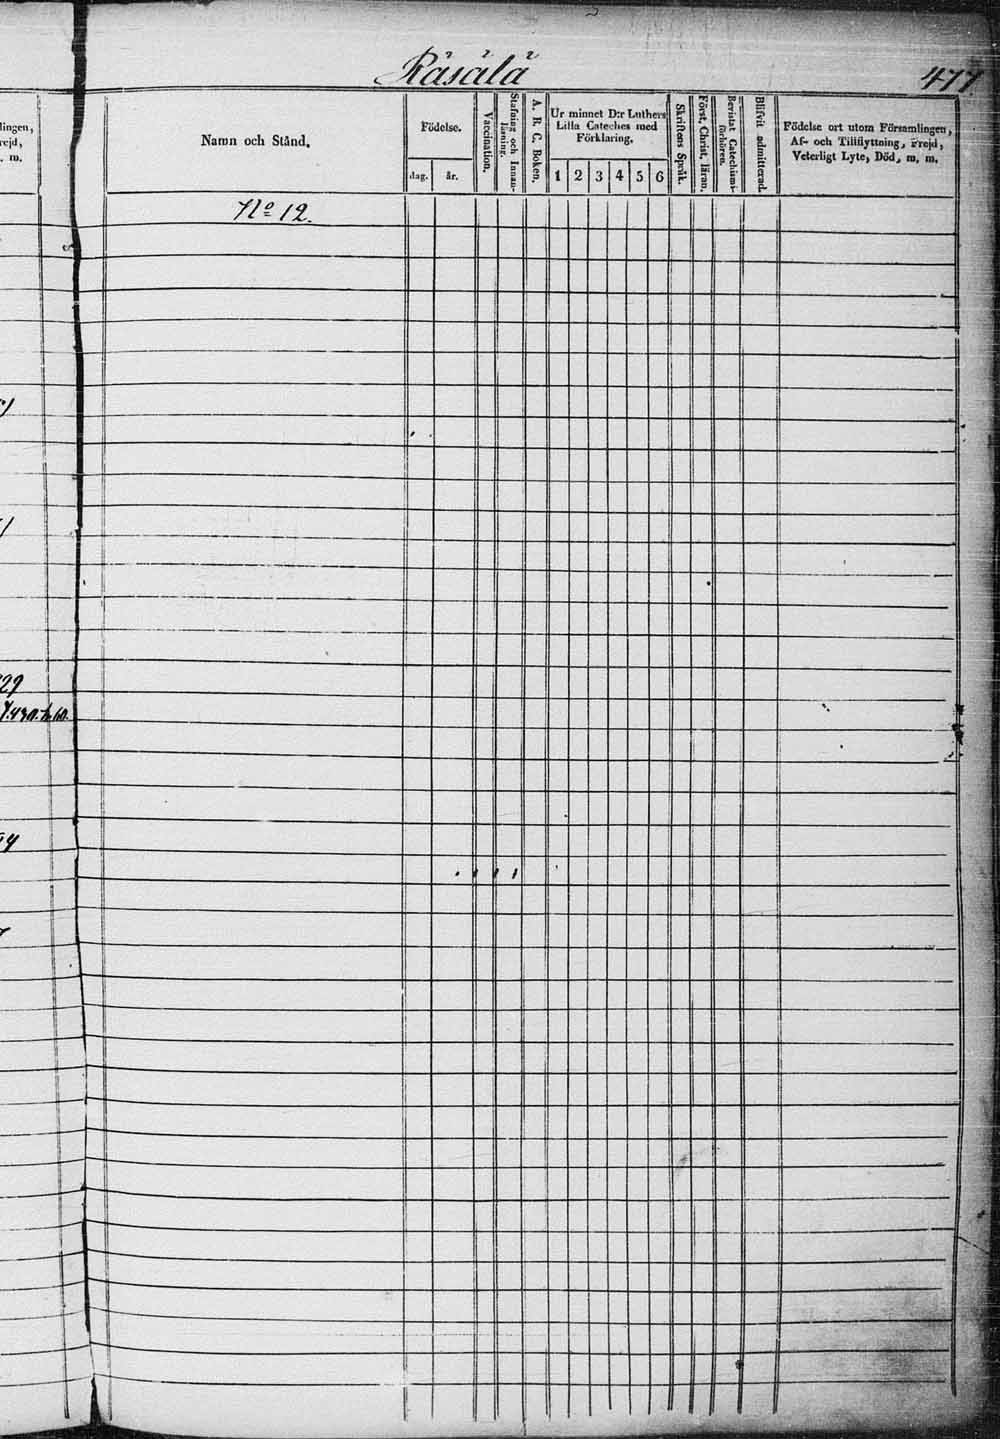 Räsälä 477
lingen,
rejd,
. m.
Namn och Stånd.
Födelse.
dag. år.
Vaccination.
Stafning och Innan-
läsning.
A. B. C. Boken.
Ur minnet D:r Luthers
Lilla Cateches med
Förklaring.
1 2 3 4 5 6
Skriftens Språk.
Först. Christ. läran.
Bevistat Catechismi-
förhören.
Blifvit admitterad.
Födelse ort utom Församlingen,
Af- och Tillflyttning, Frejd,
Veterligt Lyte, Död, m. m.
No 12.
29